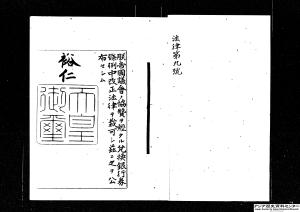 法律第九號
朕帝國議會ノ協贊ヲ經タル兌換銀行券
條例中改正法律ヲ裁可シ茲ニ之ヲ公
布セシム
裕仁
天皇
御璽
アジア歴史資料センター